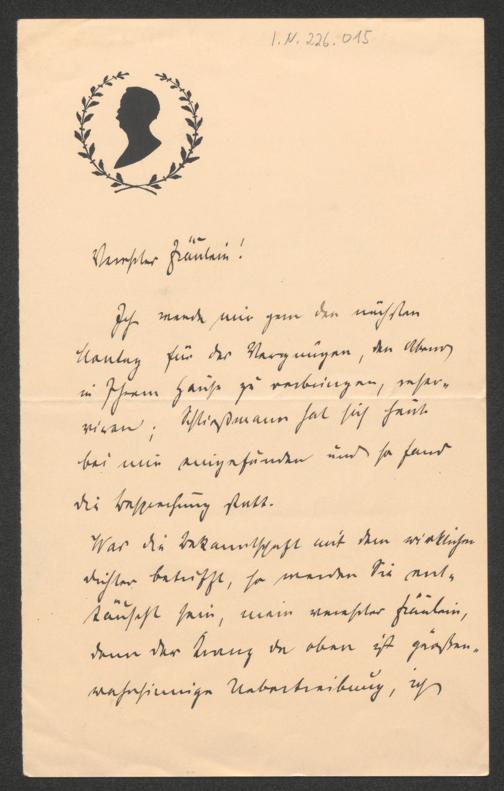 I.N. 226.015
Verehrter Fräulein!
Ich werde mir gern den nächsten
Montag für das Vergnügen, den Abend
in Ihrem Hause zu verbringen, reser-
viren; Schließmann hat sich heut
bei mir eingefunden und so fand
die Besprechung statt.
Was die Bekanntschaft mit dem wirklichen
Dichter betrifft, so werden Sie ent-
täuscht sein, mein verehrter Fräulein,
denn der Kranz da oben ist größen-
wahnsinnige Uebertreibung, ich